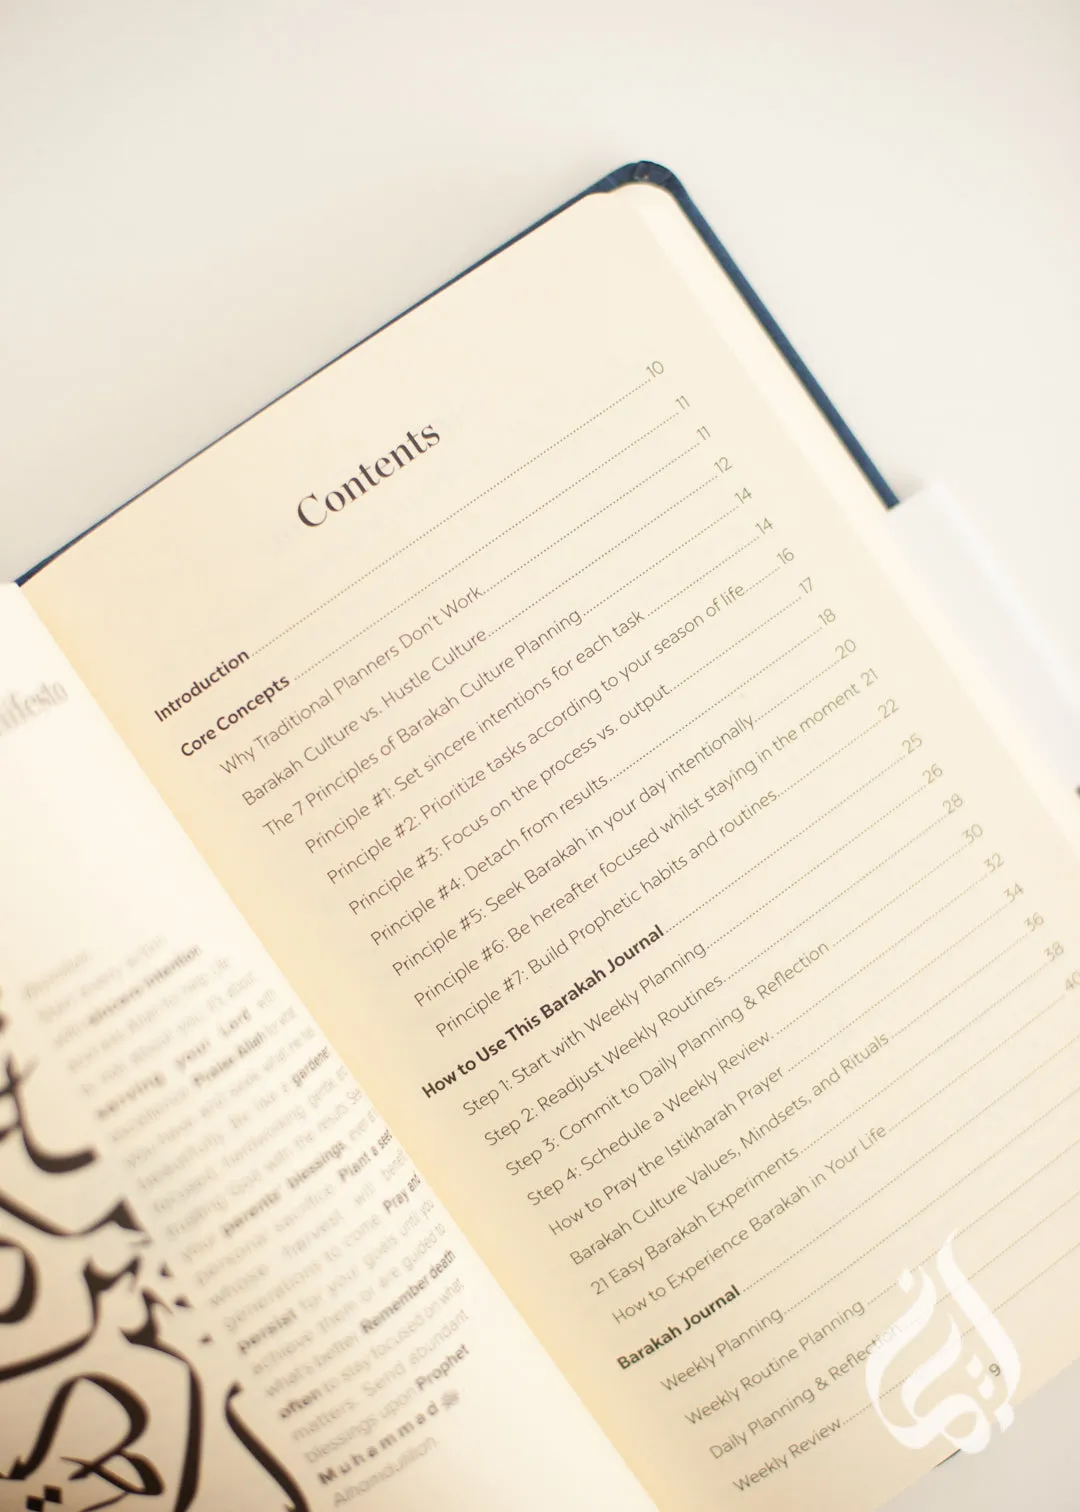 nifesto
sincere intention
serving your Lord with
Praise Allah
gardener
parents' blessings
Plant a seed
Pray and
persist for your goals until you
achieve them or are guided to
what's better. Remember death
often to stay focused on what
matters. Send abundant
blessings upon Prophet
Muhammad ﷺ
Alhamdulillah.
Contents
Introduction 10
Core Concepts 11
Why Traditional Planners Don't Work 11
Barakah Culture vs. Hustle Culture 12
The 7 Principles of Barakah Culture Planning 14
Principle #1: Set sincere intentions for each task 14
Principle #2: Prioritize tasks according to your season of life 16
Principle #3: Focus on the process vs. output 17
Principle #4: Detach from results 18
Principle #5: Seek Barakah in your day intentionally 20
Principle #6: Be hereafter focused whilst staying in the moment 21
Principle #7: Build Prophetic habits and routines 22
How to Use This Barakah Journal 25
Step 1: Start with Weekly Planning 26
Step 2: Readjust Weekly Routines 28
Step 3: Commit to Daily Planning & Reflection 30
Step 4: Schedule a Weekly Review 32
How to Pray the Istikharah Prayer 34
Barakah Culture Values, Mindsets, and Rituals 36
21 Easy Barakah Experiments 38
How to Experience Barakah in Your Life 40
Barakah Journal
Weekly Planning
Weekly Routine Planning
Daily Planning & Reflection
Weekly Review
9